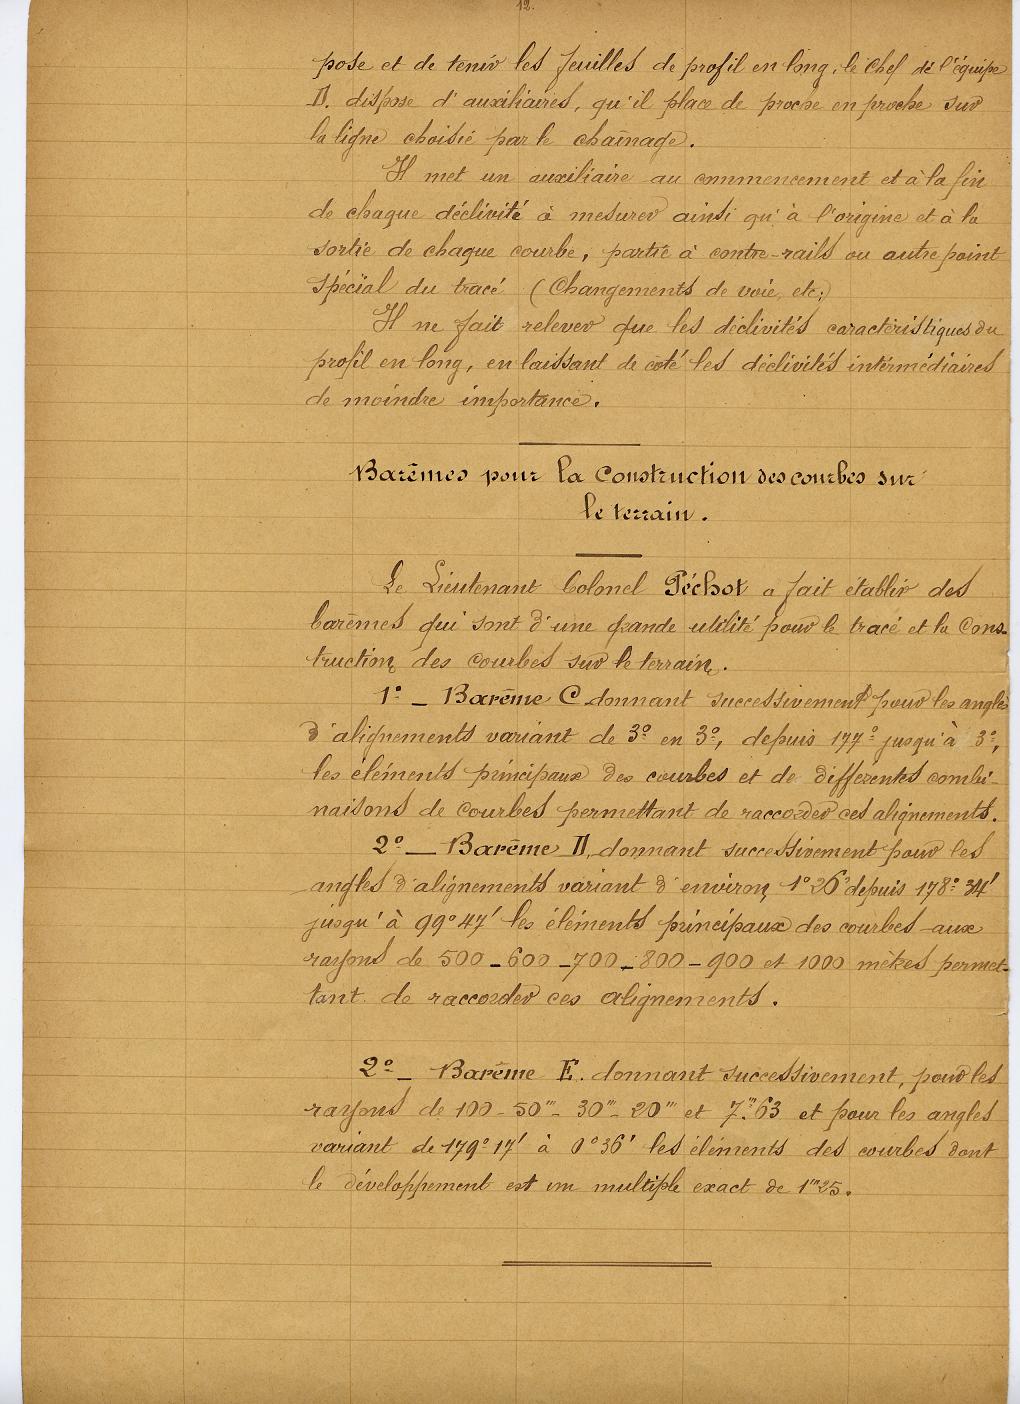 12.
pose et de tenir les feuilles de profil en long, le Chef de l'équipe
D. dispose d'auxiliaires, qu'il place de proche en proche sur
la ligne choisie par le chaînage.
Il met un auxiliaire au commencement et à la fin
de chaque déclivité à mesurer ainsi qu'à l'origine et à la
sortie de chaque courbe, partie à contre-rails ou autre point
spécial du tracé (Changements de voie, etc;)
Il ne fait relever que les déclivités caractéristiques du
profil en long, en laissant de côté les déclivités intermédiaires
de moindre importance.
Barêmes pour la Construction des courbes sur
le terrain.
Le Lieutenant Colonel Péchot a fait établir des
barêmes qui sont d'une grande utilité pour le tracé et la Cons-
truction des courbes sur le terrain.
1° _ Barême C donnant successivement pour les angles
d'alignements variant de 3° en 3°, depuis 177° jusqu'à 3°,
les éléments principaux des courbes et de différentes combi-
naisons de courbes permettant de raccorder ces alignements.
2° _ Barême D, donnant successivement pour les
angles d'alignements variant d'environ 1°26' depuis 178° 34'
jusqu'à 99°47' les éléments principaux des courbes aux
rayons de 500 _ 600 _ 700 _ 800 _ 900 et 1000 mètres permet-
tant de raccorder ces alignements.
2° _ Barême E. donnant successivement, pour les
rayons de 100 - 50m - 30m - 20m et 7m.63 et pour les angles
variant de 179° 17' à 0°36' les éléments des courbes dont
le développement est un multiple exact de 1m25.